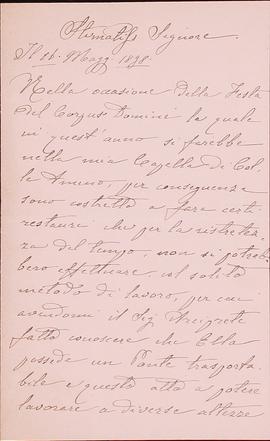 Stimatifs Signore.
Il 26. Magg. 1898.
Nella occasione della Festa
del Corpus Domini la quale
in quest'anno si farebbe
nella mia Capella di Col-
le Ameno, per conseguenza
sono costretto a fare certi
restauri che per la ristretez-
za del tempo, non si potreb-
bero effettuare, col solito
metodo di lavoro, per cui
avendomi il Sig
fatto conoscere che Ella
possede un Ponte trasporta-
bile e questo atto a potere
lavorare a diverse altezze